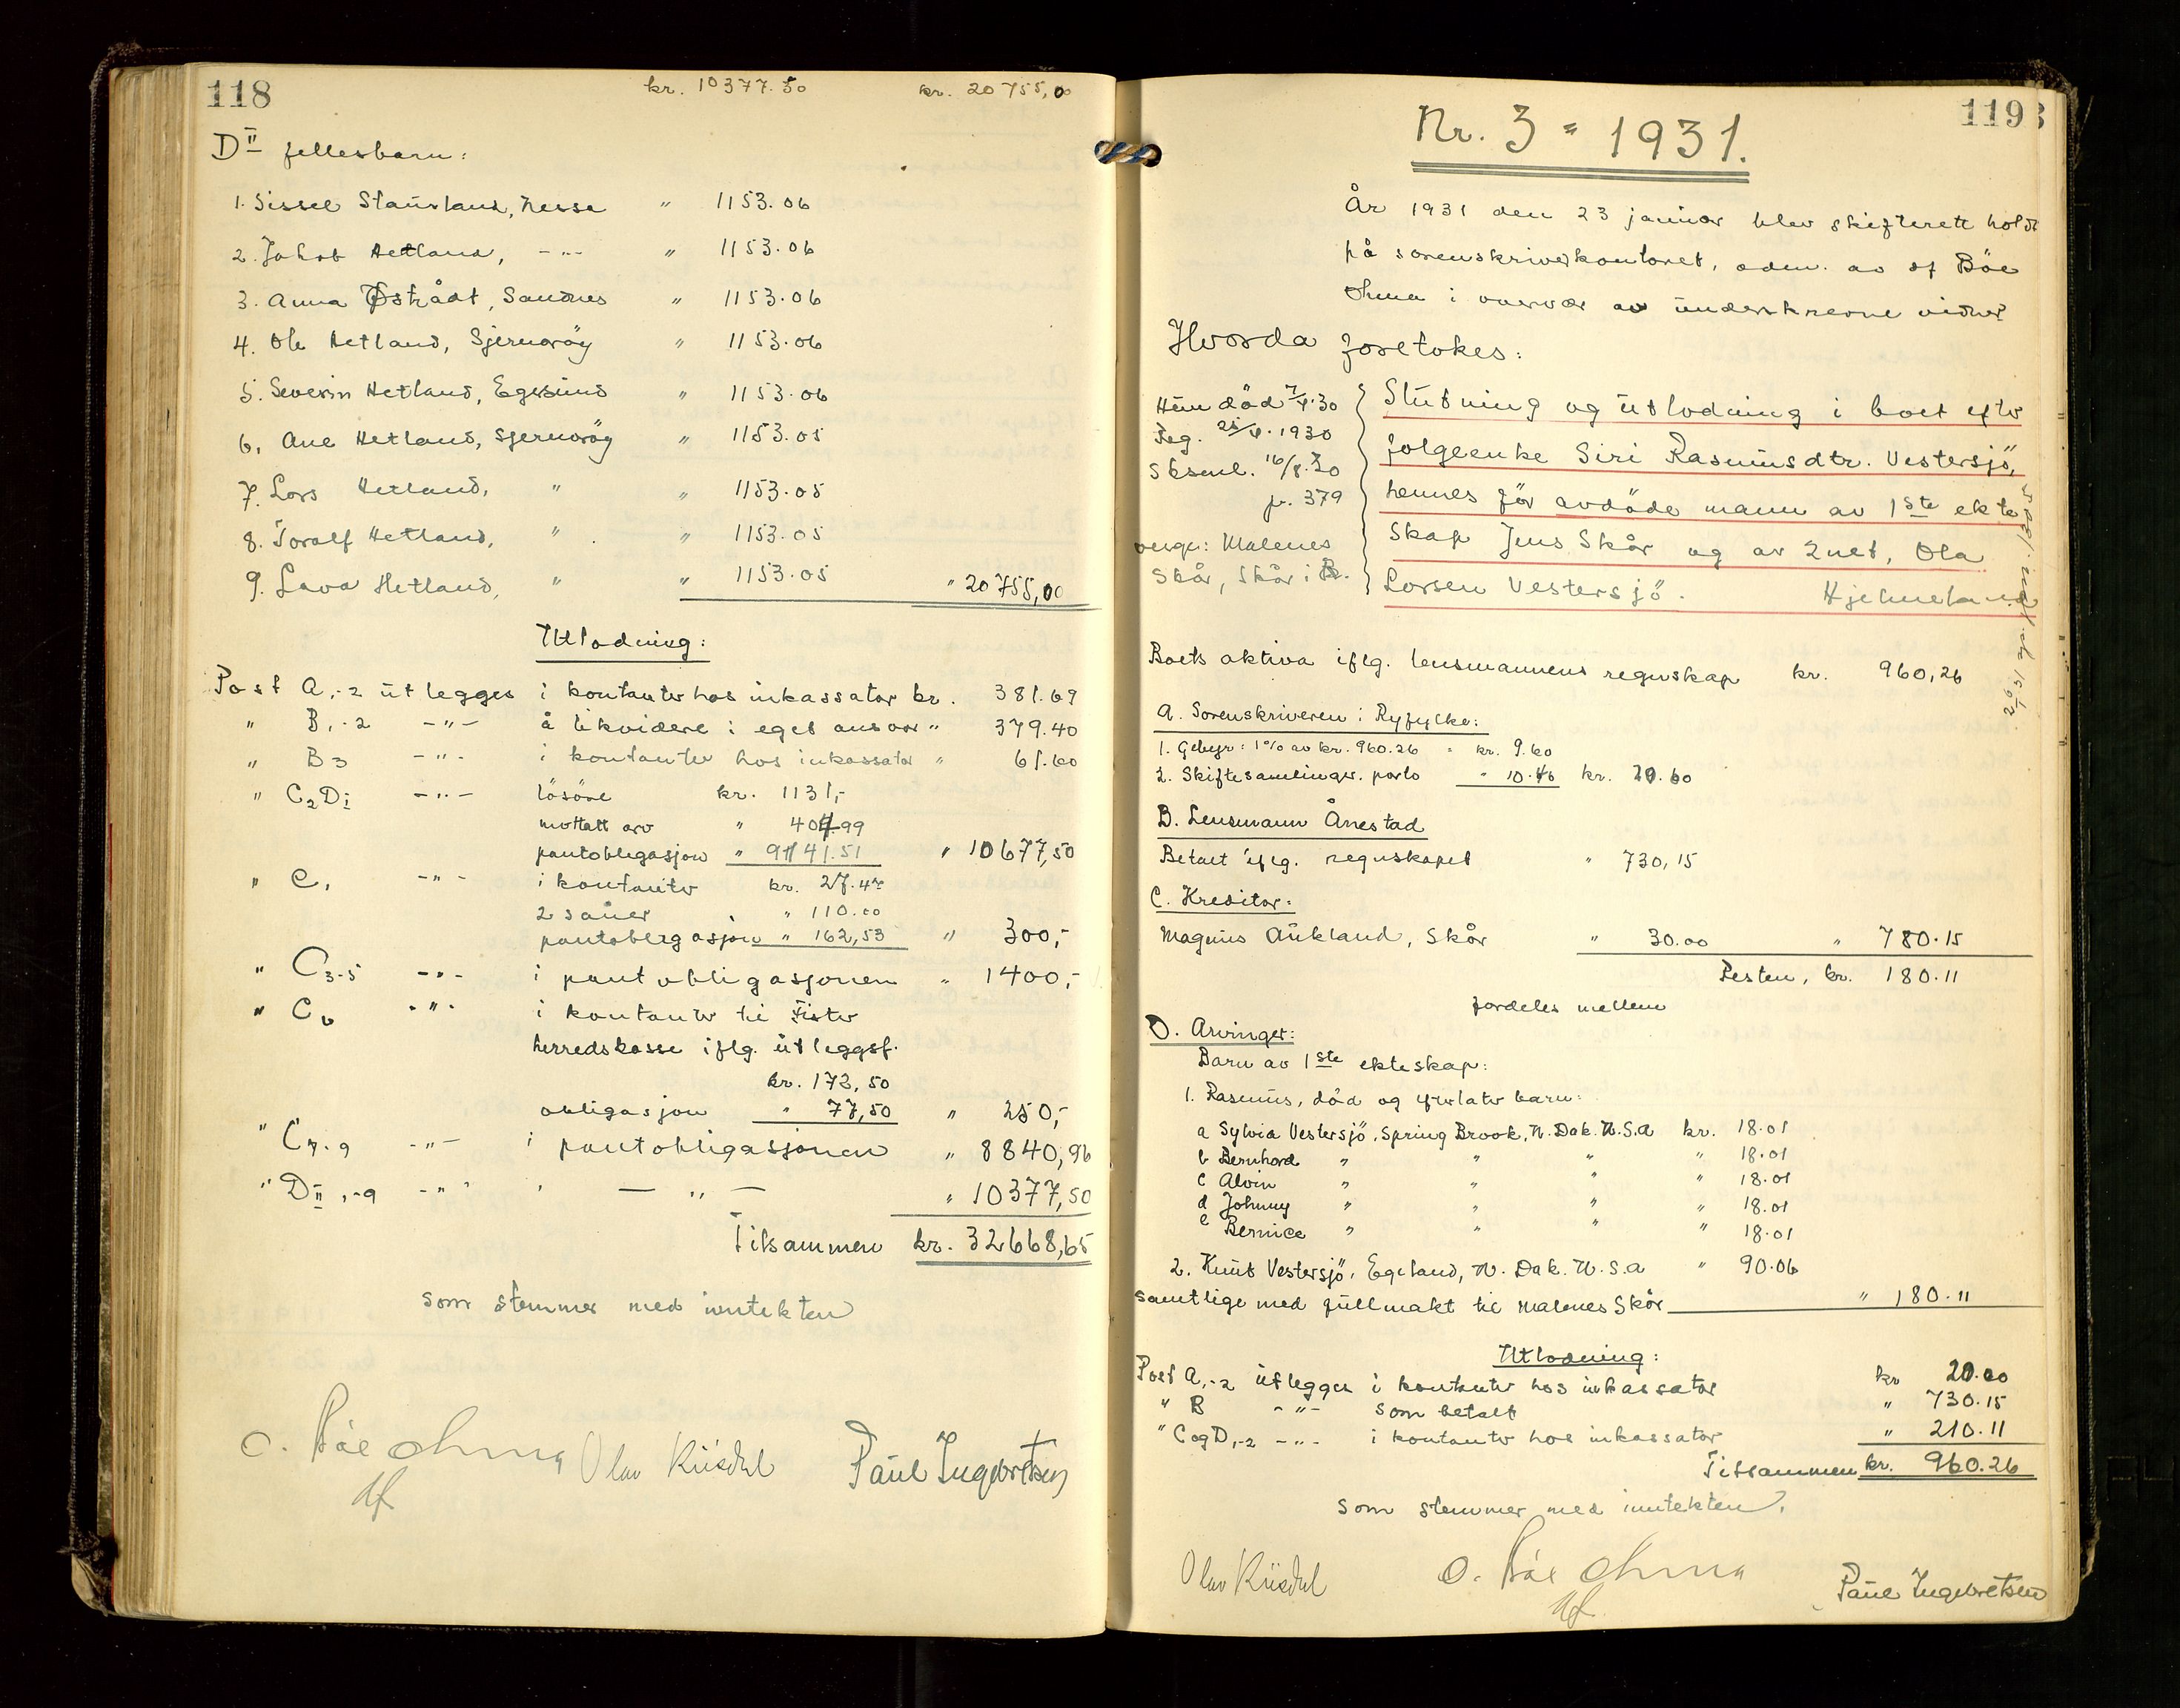 118
kr. 10377.50 kr. 20755,00
D II fellesbarn:
1. Sissel Staurland, Nesse " 1153.06
2. Jakob Hetland, -"- " 1153.06
3. Anna Østrådt, Sandnes " 1153.06
4. Ole Hetland, Sjernorøy " 1153.06
5. Severin Hetland, Egersund " 1153.06
6. Ane Hetland, Sjernorøy " 1153.05
7. Lars Hetland, " " 1153.05
8. Toralf Hetland, " " 1153.05
9. Lava Hetland, " " 1153.05 " 20755,00
Utlodning:
Post A,-2 utlegges i kontanter hos inkassator kr. 381.69
" B,-2 -"- å likvidere i eget ansvar " 379.40
" B3 -"- i kontanter hos inkassator " 61.60
" C2 DI -"- løsøre kr. 1131,-
mottatt arv " 404.99
pantobligasjon " 9141.51 " 10677,50
" C, -"- i kontanter kr. 27.47
2 sauer " 110.00
pantobligasjon " 162,53 " 300,-
" C3-5 -"- i pantobligasjonen " 1400,-
" C6 -"- i kontanter til Fister
herredskasse iflg. utleggsf.
kr. 172,50
obligasjon " 77,50 " 250,-
" C7-9 -"- i pantobligasjonen " 8840,96
" DII,-9 -"- " — " — " 10377,50
Tilsammen kr. 32668,65
som stemmer med inntekten
O. Bøe Ohma
df
Olav Riisdal
Paul Ingebretsen
119
Nr. 3 = 1931.
År 1931 den 23 januar blev skifterett holdt
på sorenskriverkontoret, adm. av df Bøe
Ohma i overvær av underskrevne vidner
Hvorda foretokes:
Hun død 7/4.30
Teg. 25/4. 1930
Sksml. 16/8.30
p. 379
verge: Malenes
Skår, Skår i B.
Slutning og utlodning i boet efter
følgeenke Siri Rasmusdtr. Vestersjø,
hennes før avdøde mann av 1ste ekte
skap Jens Skår og av 2net, Ola
Larsen Vestersjø. Hjelmeland
Boets aktiva iflg. lensmannens regnskap kr. 960,26
A. Sorenskriveren i Ryfylke:
1. Gebyr: 1% av kr. 960.26 " kr. 9.60
2. Skiftesamlinger, porto " 10.40 kr. 20.00
B. Lensmann Ånestad
Betalt iflg. regnskapet " 730,15
C. Kreditor:
Magnus Aukland, Skår " 30.00 " 780.15
Resten, kr. 180.11
fordeles mellem
D. Arvinger:
Barn av 1ste ekteskap:
1. Rasmus, død og efterlater barn:
a Sylvia Vestersjø, Spring Brook, N. Dak. U.S.A kr. 18.01
b Bernhard " " " " 18.01
c Alvin " " " " 18.01
d Johnny " " " " 18.01
e Bernice " " " " 18.01
2. Knut Vestersjø, Egeland, N. Dak. U.S.A " 90.06
samtlige med fullmakt til Malenes Skår " 180.11
Utlodning:
Post A,-2 utlegges i kontanter hos inkassator kr 20.00
" B -"- som betalt " 730.15
" C og D,-2 -"- i kontanter hos inkassator " 210.11
Tilsammen kr. 960.26
som stemmer med inntekten.
Olav Riisdal
O. Bøe Ohma
df.
Paul Ingebretsen